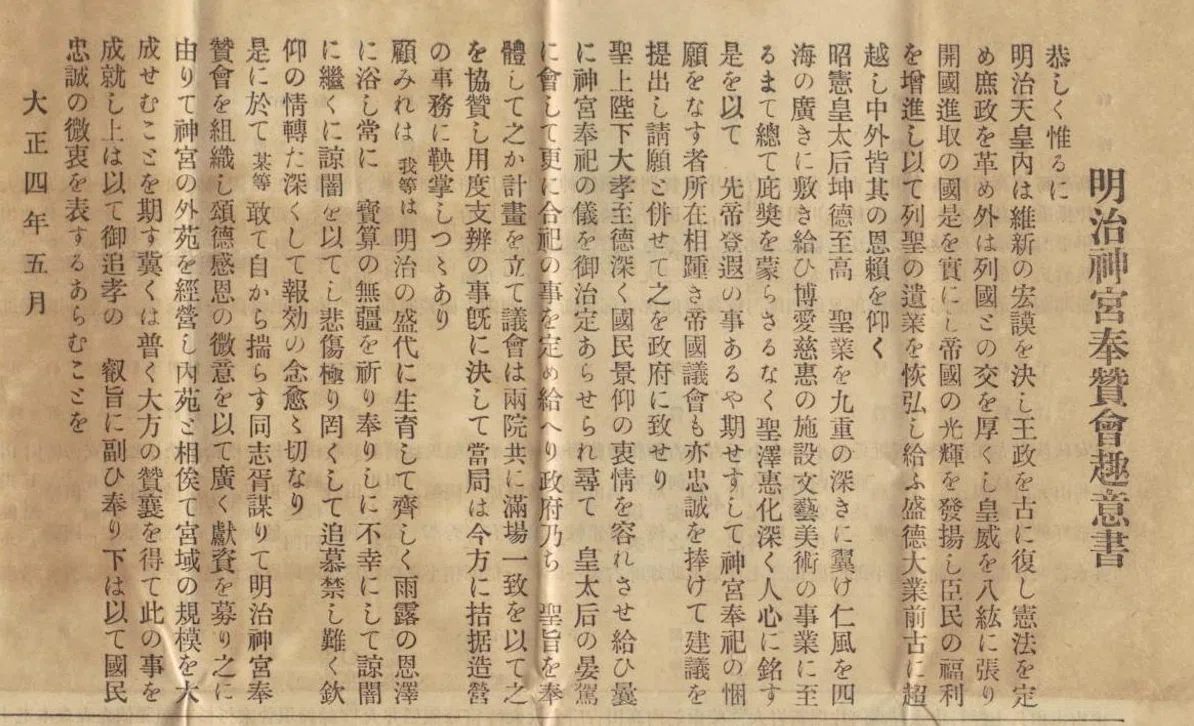 明治神宮奉贊會趣意書
恭しく惟るに
明治天皇內は維新の宏謨を決し王政を古に復し憲法を定
め庶政を革め外は列國との交を厚くし皇威を八紘に張り
開國進取の國是を實にし帝國の光輝を發揚し臣民の福利
を增進し以て列聖の遺業を恢弘し給ふ盛德大業前古に超
越し中外皆其の恩賴を仰く
昭憲皇太后坤德至高　聖業を九重の深きに翼け仁風を四
海の廣きに敷き給ひ博愛慈惠の施設文藝美術の事業に至
るまて總て庇奬を蒙らさるなく聖澤惠化深く人心に銘す
是を以て　先帝登遐の事あるや期せすして神宮奉祀の悃
願をなす者所在相踵き帝國議會も亦忠誠を捧けて建議を
提出し請願と併せて之を政府に致せり
聖上陛下大孝至德深く國民景仰の衷情を容れさせ給ひ曩
に神宮奉祀の儀を御治定あらせられ尋て　皇太后の晏駕
に會して更に合祀の事を定め給へり政府乃ち　聖旨を奉
體して之か計畫を立て議會は兩院共に滿場一致を以て之
を協贊し用度支辨の事旣に決して當局は今方に拮据造營
の事務に鞅掌しつゝあり
顧みれは　我等は明治の盛代に生育して齊しく雨露の恩澤
に浴し常に　寶算の無疆を祈り奉りしに不幸にして諒闇
に繼くに諒闇を以てし悲傷極り罔くして追慕禁し難く欽
仰の情轉た深くして報効の念愈〻切なり
是に於て　某等敢て自から揣らす同志胥謀りて明治神宮奉
贊會を組織し頌德感恩の微意を以て廣く獻資を募り之に
由りて神宮の外苑を經營し內苑と相俟て宮域の規模を大
成せむことを期す冀くは普く大方の贊襄を得て此の事を
成就し上は以て御追孝の　叡旨に副ひ奉り下は以て國民
忠誠の微衷を表するあらむことを
大正四年五月